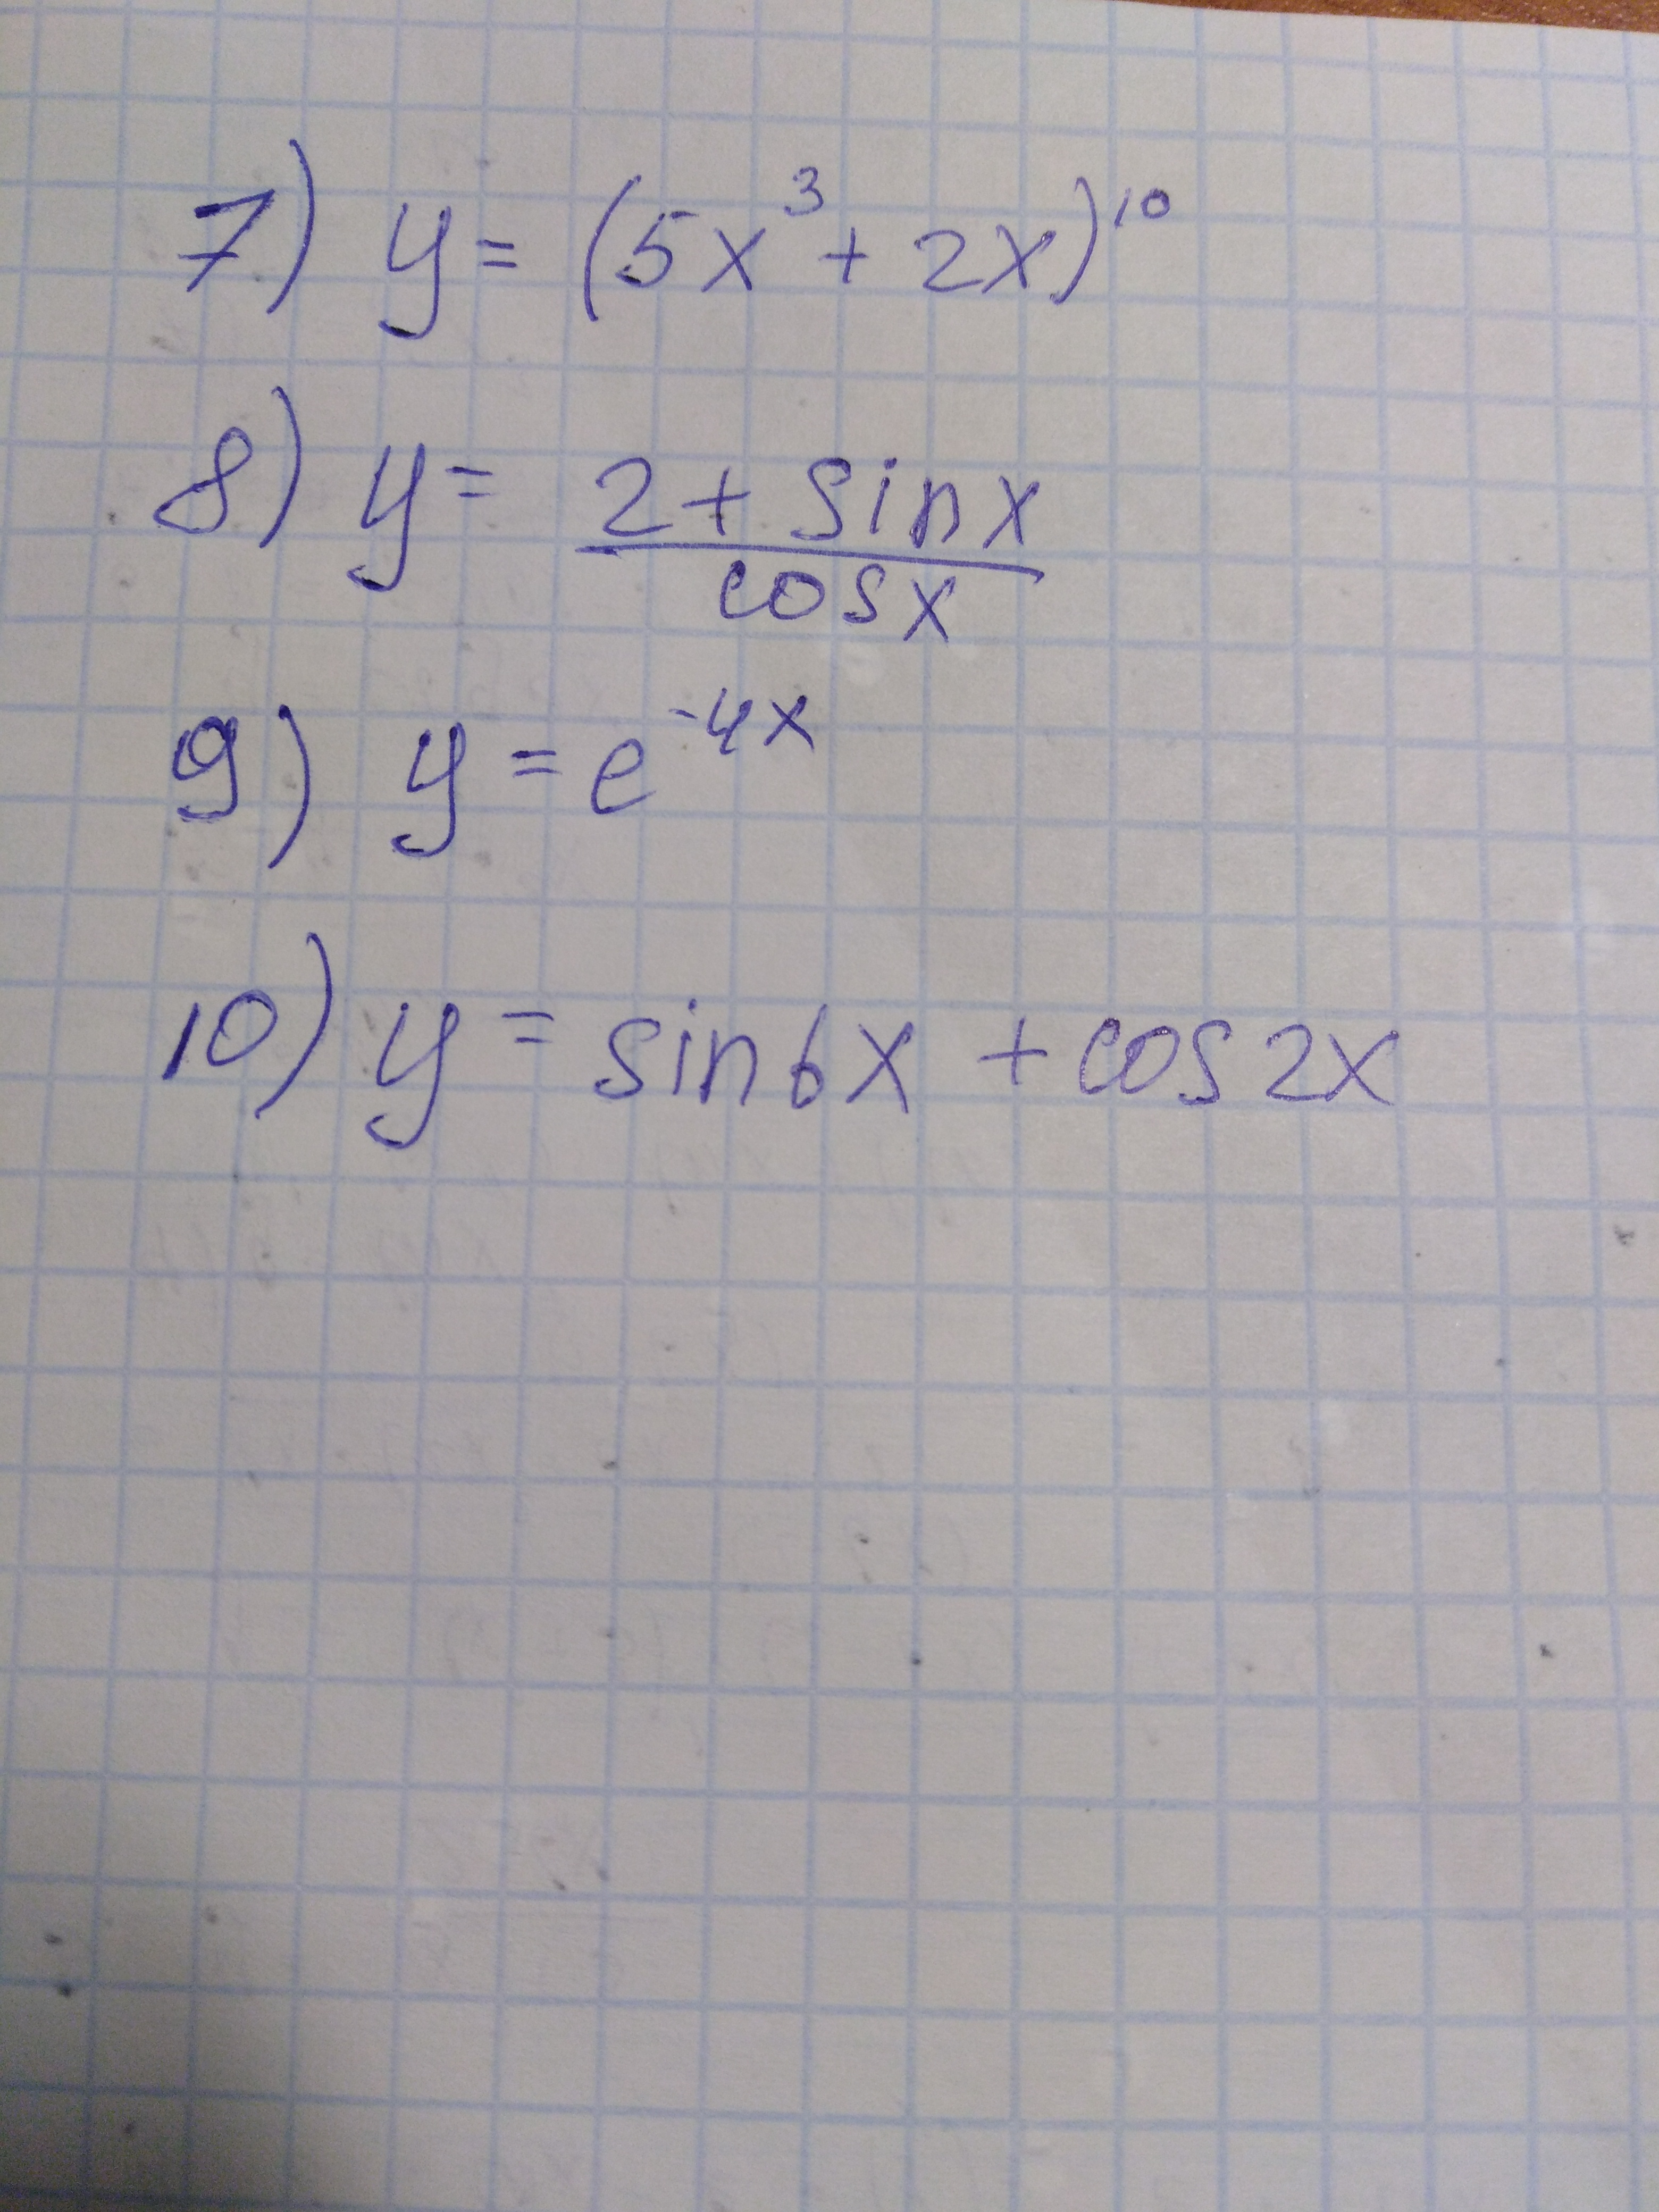 7) y = (5x³ + 2x)¹⁰
8) y = (2 + sin x)/(cos x)
9) y = e⁻⁴ˣ
10) y = sin6x + cos2x